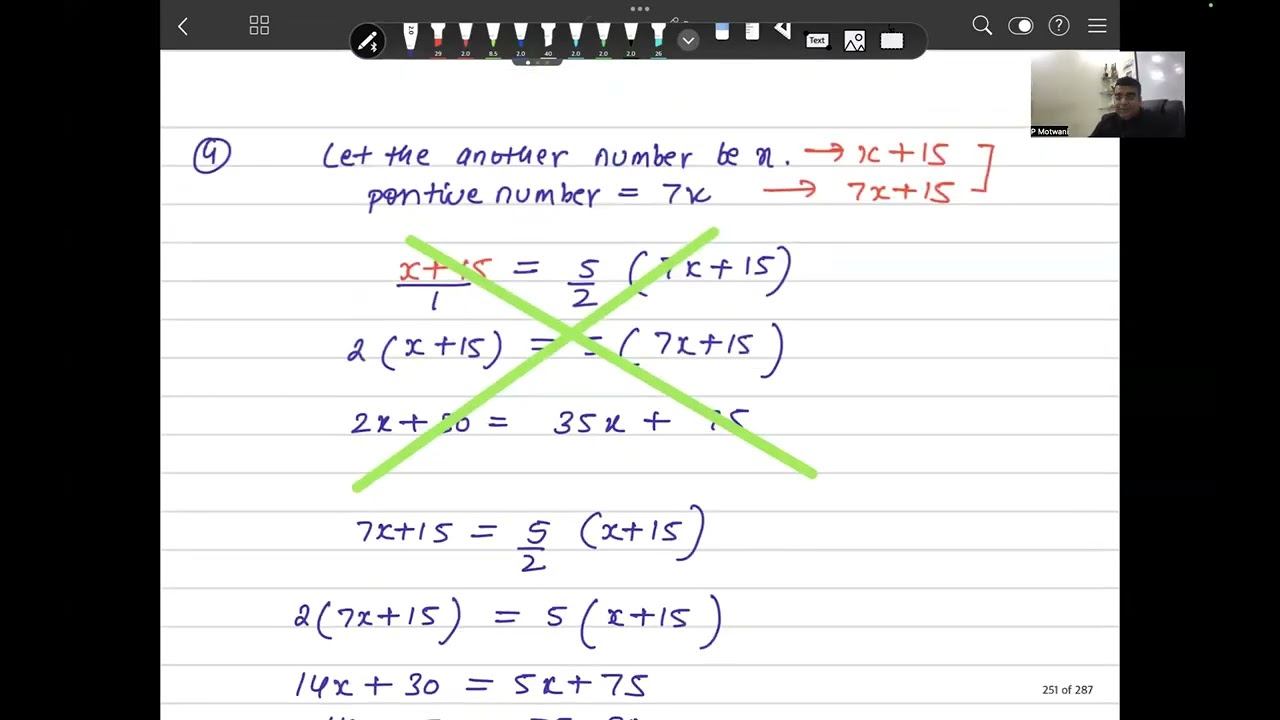 2.0 29 2.0 8.5 2.0 40 2.0 2.0 2.0 26 Text
P Motwani
4 Let the another number be x. → x+15
pontive number = 7x → 7x+15
x+15/1 = 5/2 (7x+15)
2(x+15) = 5(7x+15)
2x+30 = 35x + 75
7x+15 = 5/2 (x+15)
2(7x+15) = 5(x+15)
14x+30 = 5x+75
251 of 287